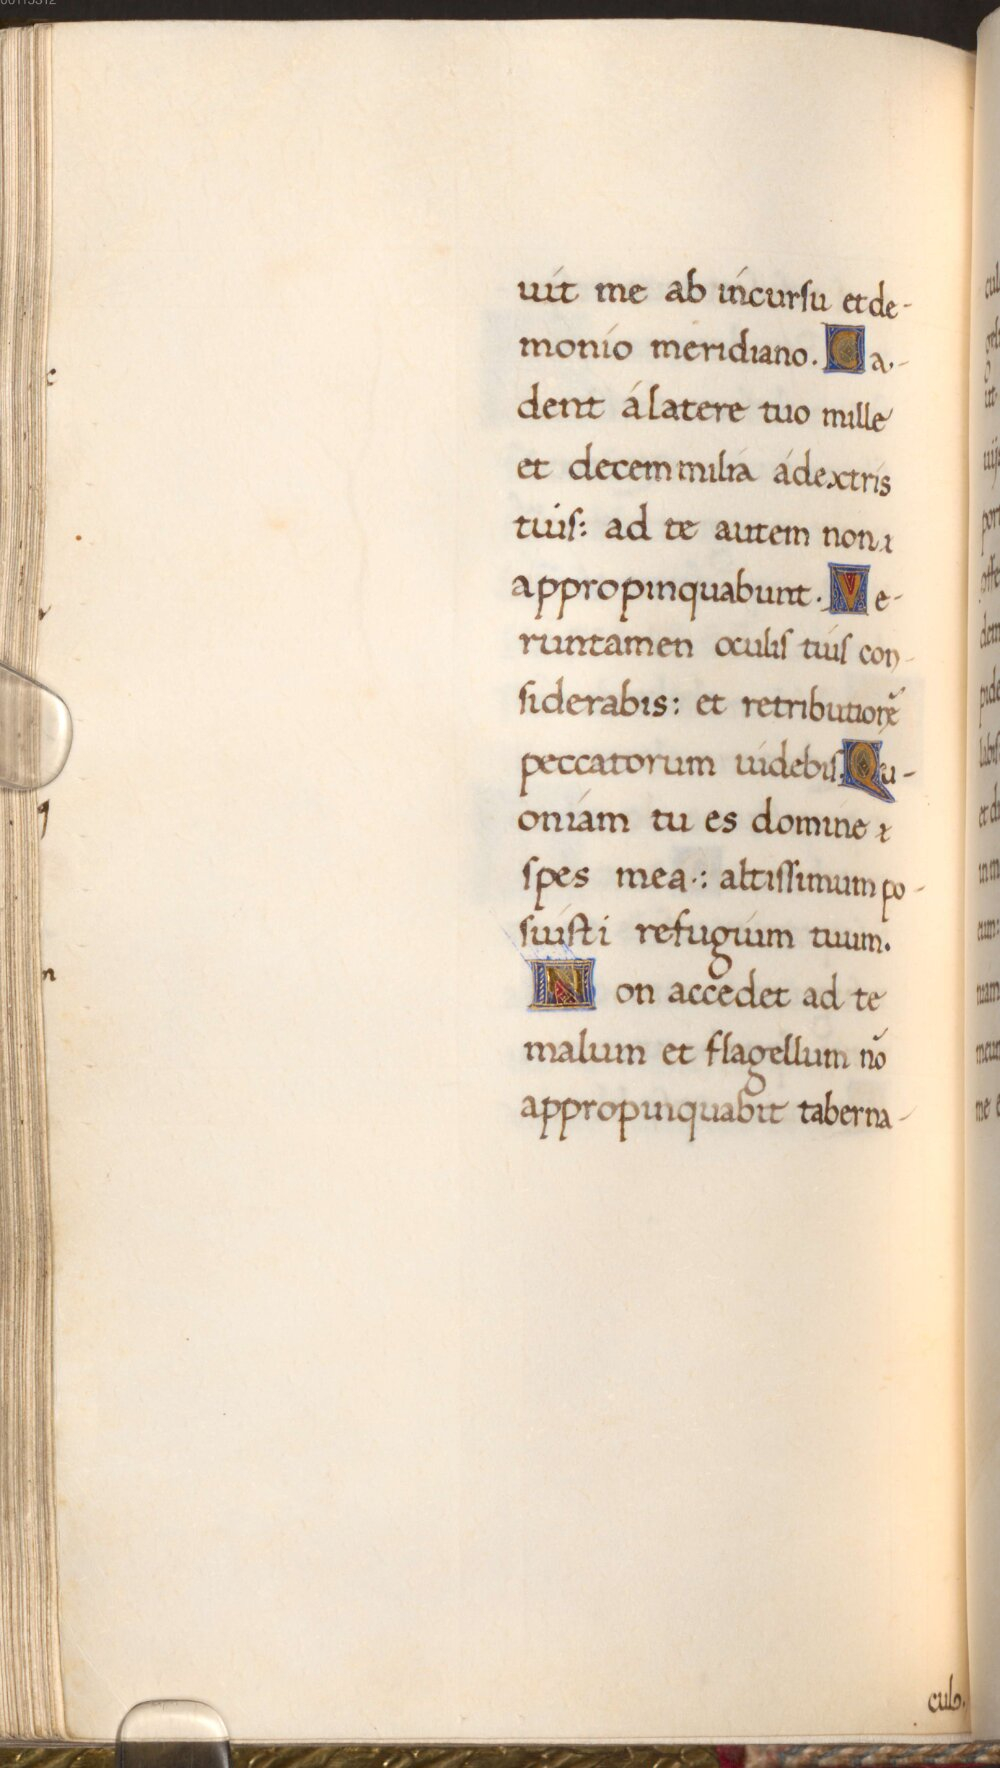 uit me ab incursu et de-
monio meridiano. Ca-
dent á latere tuo mille
et decem milia á dextris
tuis: ad te autem non
appropinquabunt. Ve-
runtamen oculis tuis con-
siderabis: et retributionē
peccatorum uidebis. Qu-
oniam tu es domine
spes mea: altissimum po-
suisti refugium tuum.
Non accedet ad te
malum et flagellum nō
appropinquabit taberna-
cul.